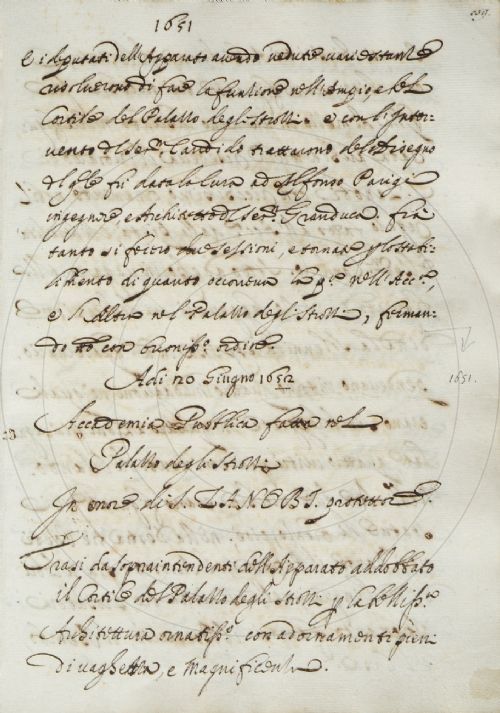 1651
E i deputati dell'Apparato avendo vedute varie stanze
risolverono di fare la funzione nell'Ampio, e bel
Cortile del Palazzo degli Strozzi. e con l'Inter-
vento del Ser.° Candido trattarono del disegno
del q.le fù data la Cura ad Alfonso Parigi
ingegnere, e Architetto del Ser.° Granduca. frà
tanto si fecero due sessioni, e tornate p lo stabi-
limento di quanto occorreva la p.a nell'Acc.a,
e l'Altra nel Palazzo degli Strozzi, ferman-
do il tto con buoniss.° ordine.
Adi 20 Giugno 1651
1651.
Accademia Pubblica fatta nel
Palazzo degli Strozzi
In onore di S. ZANOBI. protettore.
Erasi da sopraintendenti dell'Apparato addobbato
il Cortile del Palazzo degli Strozzi p la belliss.a
Architettura ornatiss.° con adornamenti pieni
di vaghezza, e magnificenza.